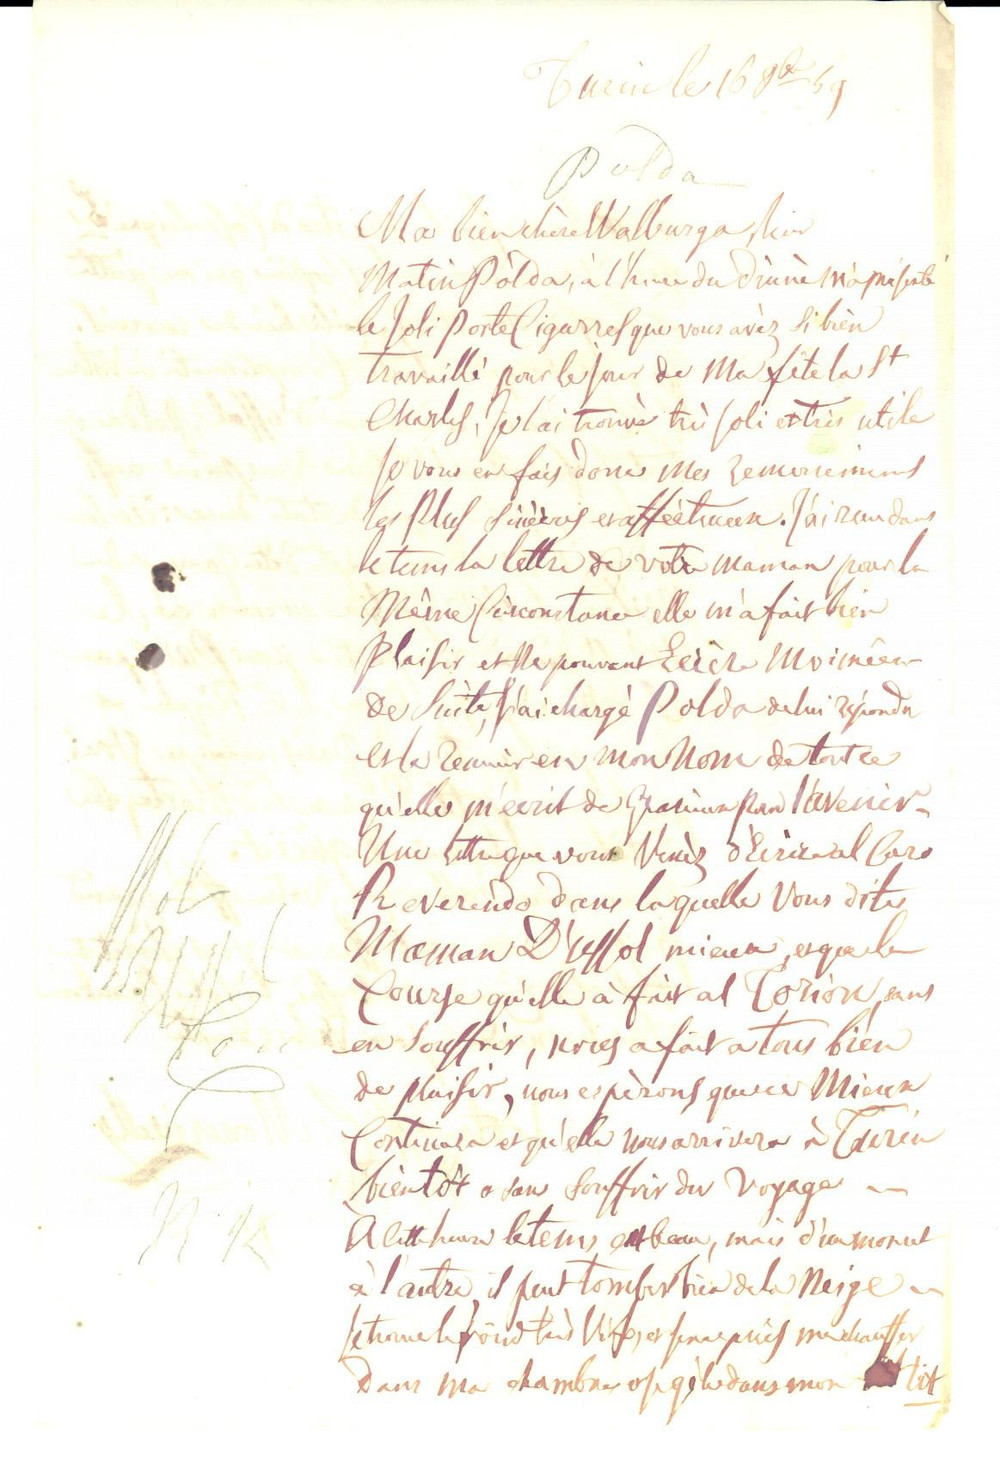 Turin le 16 8bre 59
Polda
Ma bien chère Walburga, hier
Matin Pólda, à l'heure du Dìnèr m'a présenté
le Joli Porte Cigarres que vous avèz si bièn
travaillè pour le jour de Ma fète la St
Charles, Je l'ai trouvè trés Joli et très utile
Je vous en fais donc Mes remercimens
les Plus sincères et affèctueux. J'ai reçu dans
le tems la lettre de votre maman pour la
Mème Circonstance elle m'a fait bièn
Plaisir et Ne pouvant Ecrire Moi mème
de Suite, J'ai chargè Polda de lui répondre
et la remercier en mon Nom de tout ce
qu'elle m'ècrit de gracieux pour l'avenir
Une lettre que vous Venèz d'Ecrire al Caro
Reverendo dans laquelle Vous dites
Maman D'Uffol mieux, et que la
Course qu'elle à fait al Torion, sans
en Souffrir, nous a fait a tous bièn
de plaisir, nous espèrons que ce Mieux
Continuera et qu'elle nous arrivera à Turin
bientôt e sans Souffrir du Voyage
A cette heure le tems est beau, mais d'un moment
à l'autre, il peut tomber bien de la Neige
Je trouve le froid très Vif, et je ne puis me chauffer
Dans ma chambre où je gèle dans mon lit